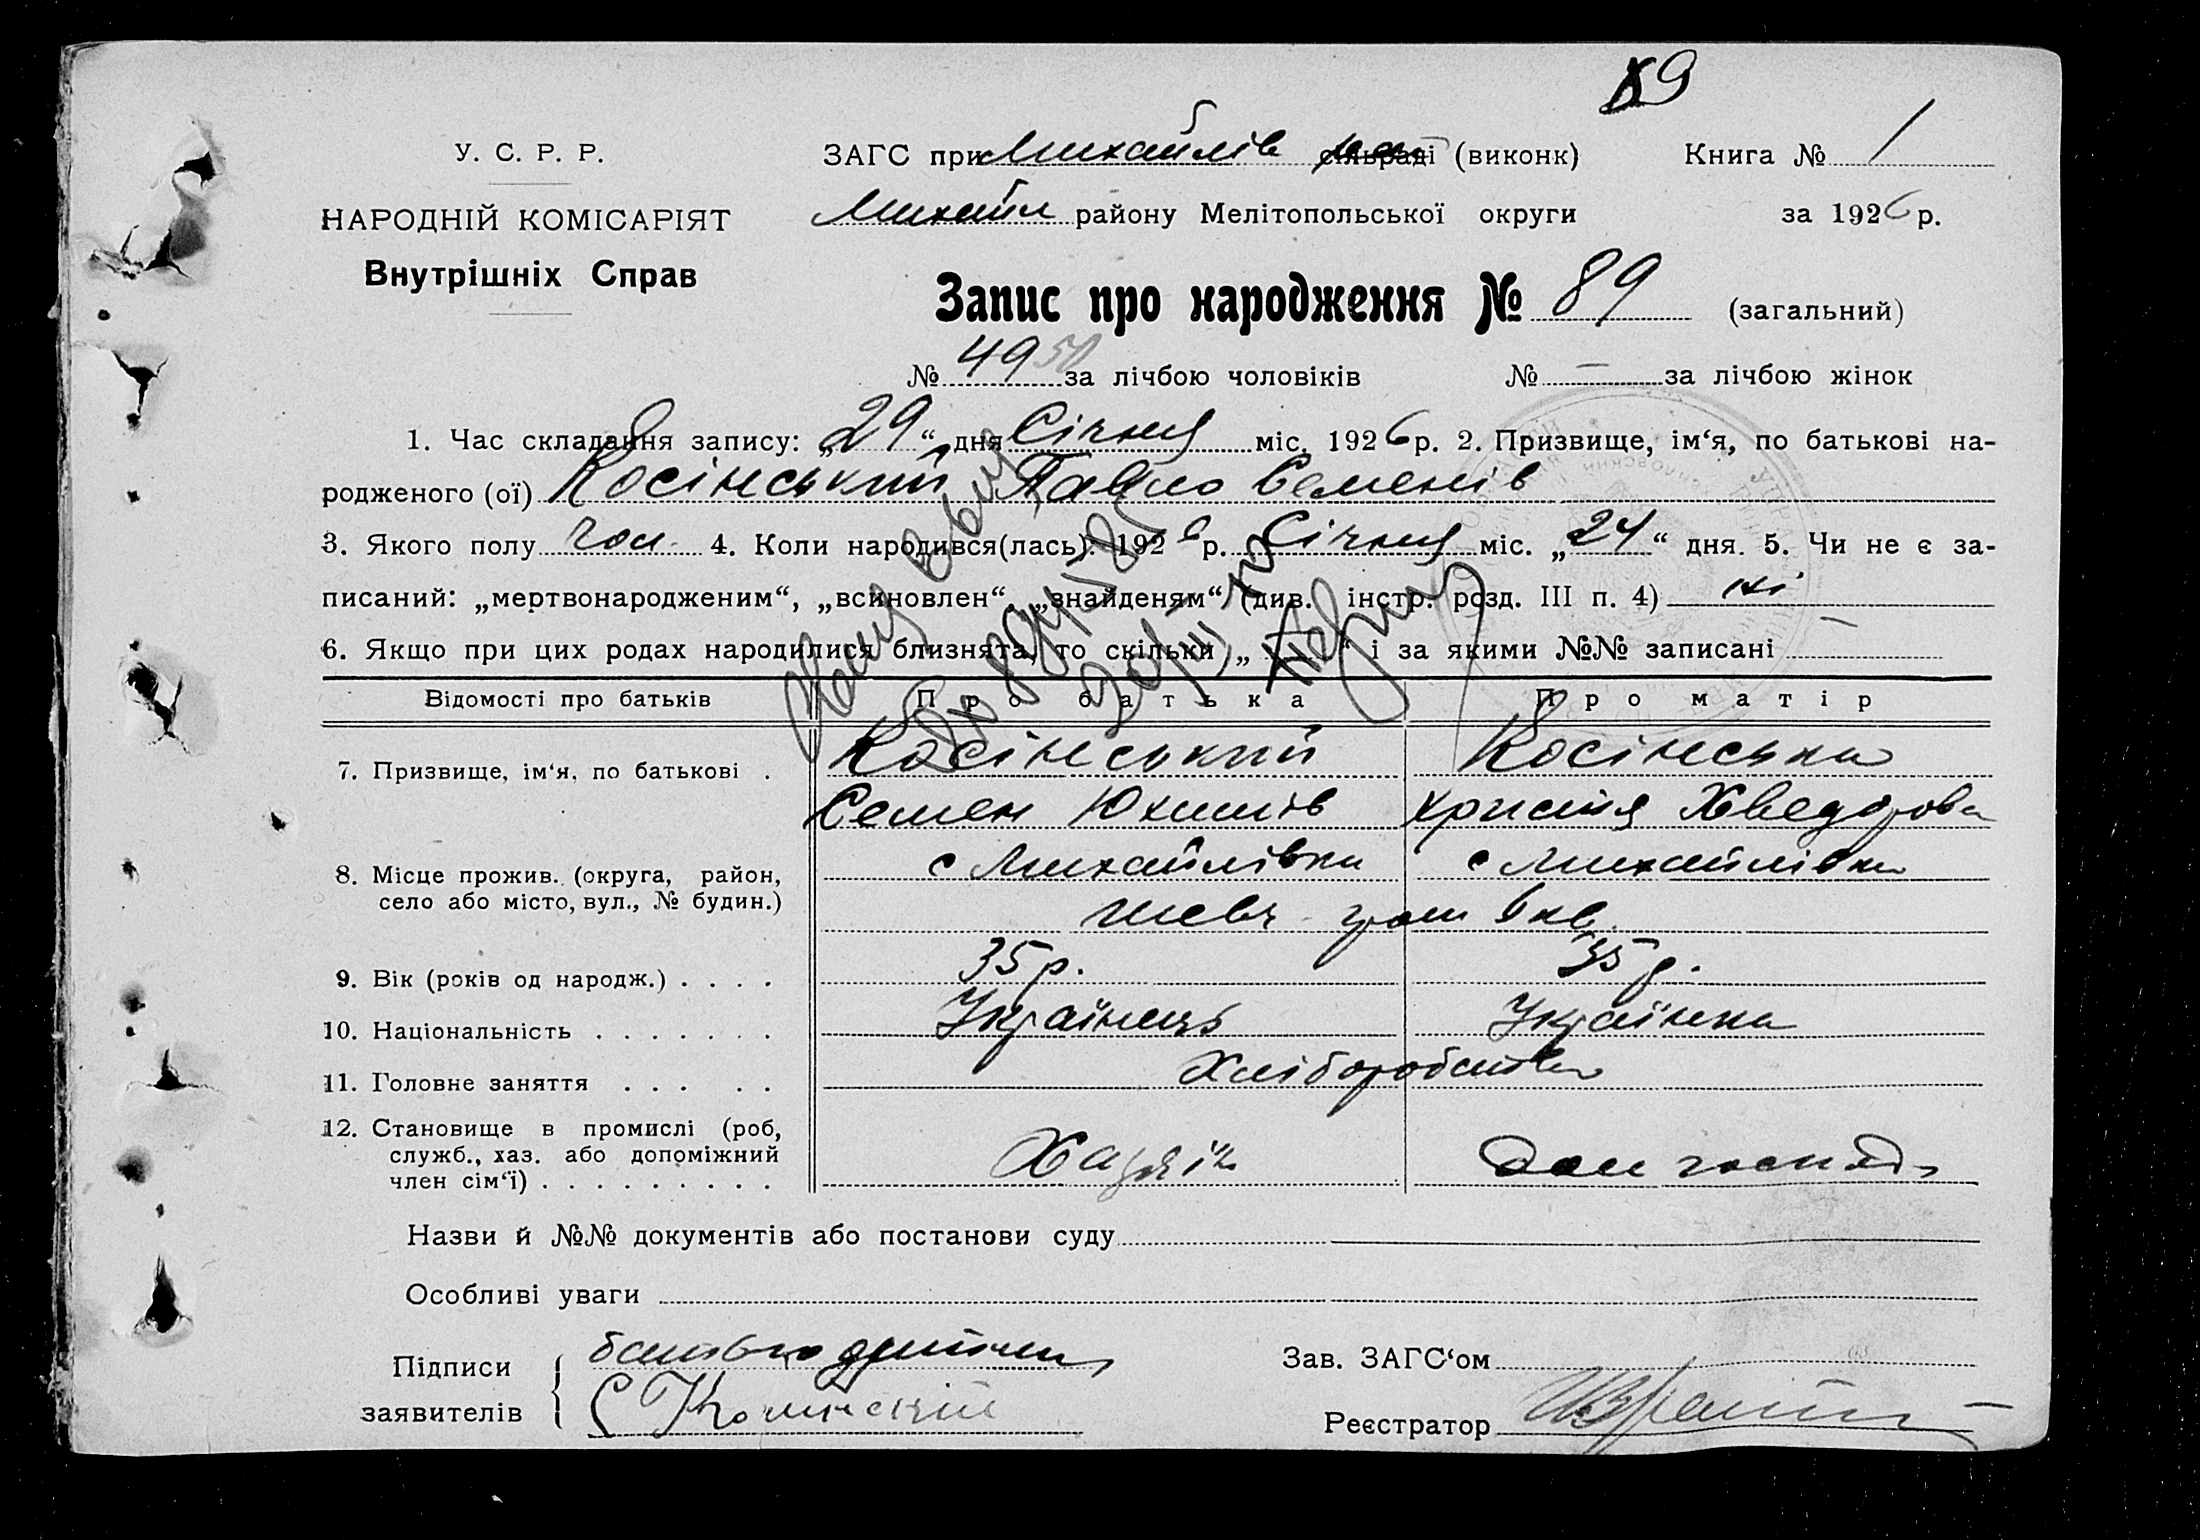 89
У. С. Р. Р. ЗАГС при Михайлів сільраді (виконк) Книга № 1
НАРОДНІЙ КОМІСАРІЯТ Михайл району Мелітопольської округи за 1926 р.
Внутрішніх Справ
Запис про народження № 89 (загальний)
№ 49 50 за лічбою чоловіків № — за лічбою жінок
1. Час складання запису: „29“ дня Січня міс. 1926 р. 2. Призвище, ім‘я, по батькові на-
родженого (ої) Косінський Павло Семенів
3. Якого полу чол. 4. Коли народився(лась): 1926 р. Січня міс. „24“ дня. 5. Чи не є за-
писаний: „мертвонародженим“, „всиновлен“, „знайденям“ (див. інстр. розд. III п. 4) ні
6. Якщо при цих родах народилися близнята, то скільки „ “ і за якими №№ записані —
Відомості про батьків Про батька Про матір
7. Призвище, ім‘я, по батькові . Косінський Косінська
Семен Юхимів Христя Хведорова
8. Місце прожив. (округа, район, с Михайлівка с Михайлівка
село або місто, вул., № будин.) шевч гром 6 кв
9. Вік (років од народж.) . . . . 35 р. 35 р.
10. Національність . . . . . . . Українець Українка
11. Головне заняття . . . . . Хліборобство
12. Становище в промислі (роб,
служб., хаз. або допоміжний Хазяїн Дом господ
член сім‘ї) . . . . . . . . . .
Назви й №№ документів або постанови суду
Особливі уваги
Підписи батько дитини Зав. ЗАГС‘ом
заявителів С Косинский Реєстратор